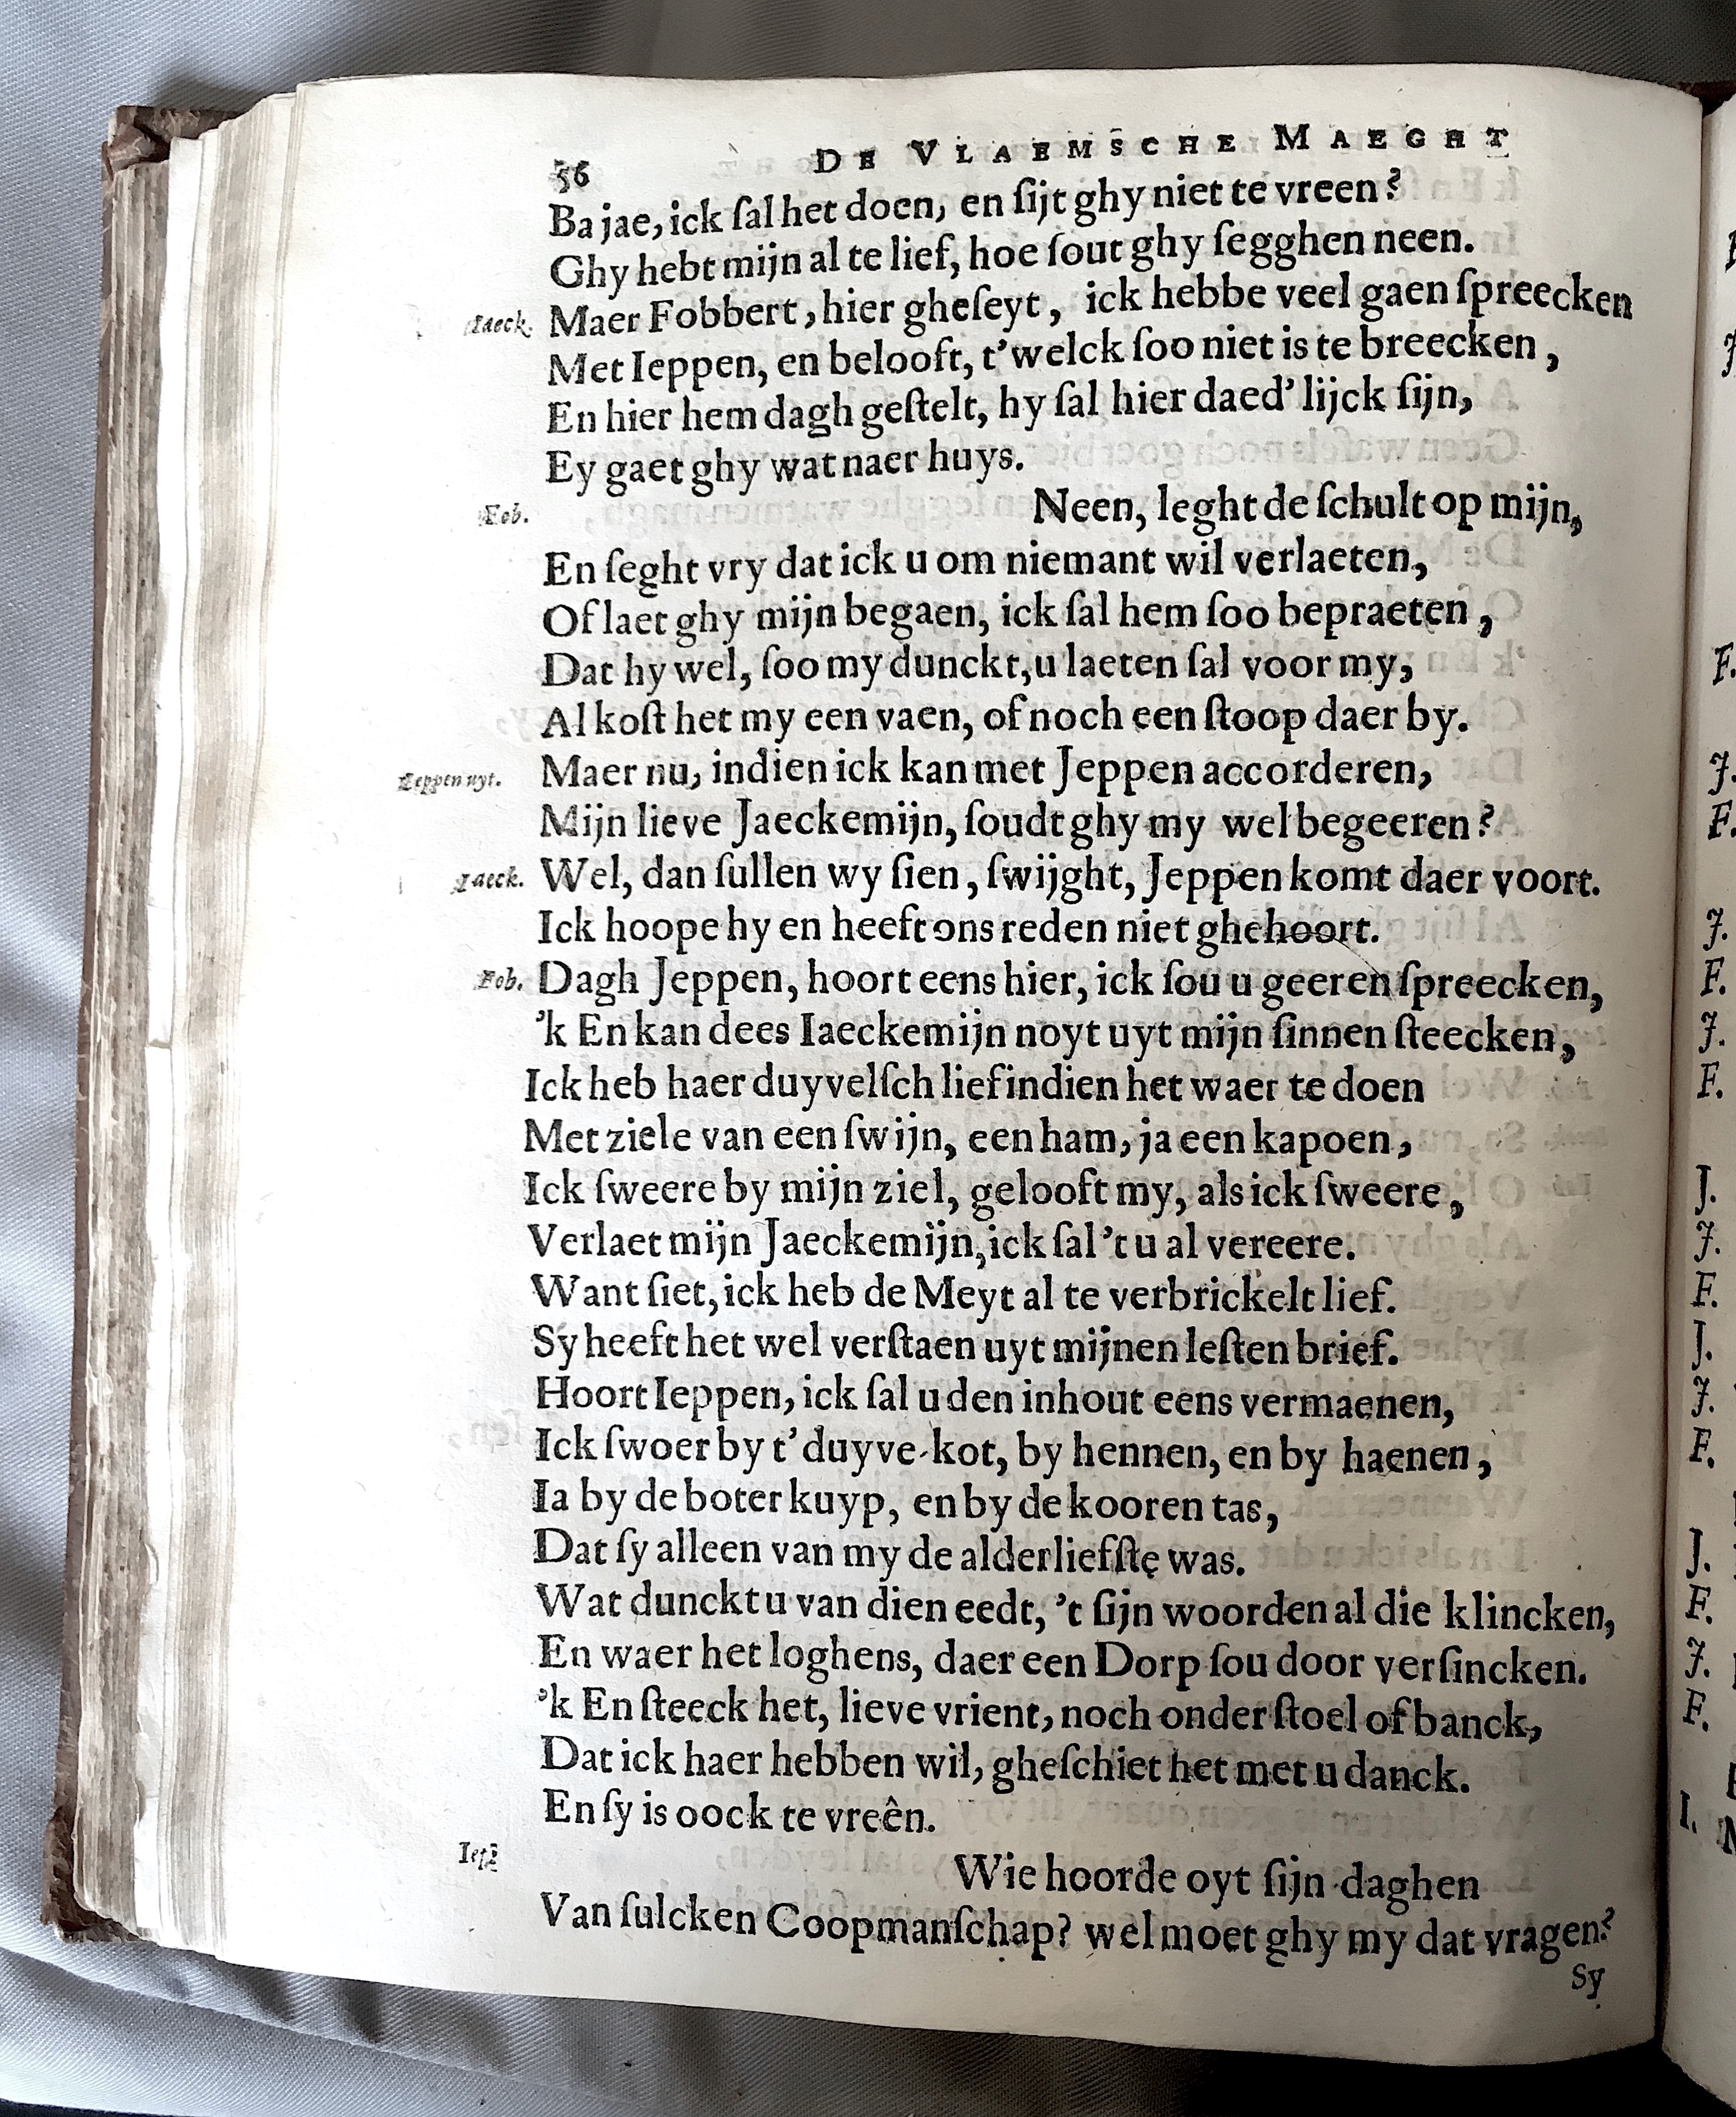 56 DE VLAEMSCHE MAEGHT
Ba jae, ick ſal het doen, en ſijt ghy niet te vreen?
Ghy hebt mijn al te lief, hoe ſout ghy ſegghen neen.
Iaeck. Maer Fobbert, hier gheſeyt, ick hebbe veel gaen ſpreecken
Met Ieppen, en belooft, t'welck ſoo niet is te breecken,
En hier hem dagh geſtelt, hy ſal hier daed'lijck ſijn,
Ey gaet ghy wat naer huys.
Fob. Neen, leght de ſchult op mijn,
En ſeght vry dat ick u om niemant wil verlaeten,
Of laet ghy mijn begaen, ick ſal hem ſoo bepraeten,
Dat hy wel, ſoo my dunckt, u laeten ſal voor my,
Al koſt het my een vaen, of noch een ſtoop daer by.
Ieppen uyt. Maer nu, indien ick kan met Jeppen accorderen,
Mijn lieve Jaeckemijn, ſoudt ghy my wel begeeren?
Jaeck. Wel, dan ſullen wy ſien, ſwijght, Jeppen komt daer voort.
Ick hoope hy en heeft ons reden niet ghehoort.
Fob. Dagh Jeppen, hoort eens hier, ick ſou u geeren ſpreecken,
'k En kan dees Iaeckemijn noyt uyt mijn ſinnen ſteecken,
Ick heb haer duyvelſch lief indien het waer te doen
Met ziele van een ſwijn, een ham, ja een kapoen,
Ick ſweere by mijn ziel, gelooft my, als ick ſweere,
Verlaet mijn Jaeckemijn, ick ſal 't u al vereere.
Want ſiet, ick heb de Meyt al te verbrickelt lief.
Sy heeft het wel verſtaen uyt mijnen leſten brief.
Hoort Ieppen, ick ſal u den inhout eens vermaenen,
Ick ſwoer by t'duyve-kot, by hennen, en by haenen,
Ia by de boter kuyp, en by de kooren tas,
Dat ſy alleen van my de alderliefſte was.
Wat dunckt u van dien eedt, 't ſijn woorden al die klincken,
En waer het loghens, daer een Dorp ſou door verſincken.
'k En ſteeck het, lieve vrient, noch onder ſtoel of banck,
Dat ick haer hebben wil, gheſchiet het met u danck.
En ſy is oock te vreên.
Iep. Wie hoorde oyt ſijn daghen
Van ſulcken Coopmanſchap? wel moet ghy my dat vragen?
Sy
F.
J.
F.
J.
F.
J.
F.
J.
J.
F.
J.
J.
F.
J.
F.
J.
F.
I.